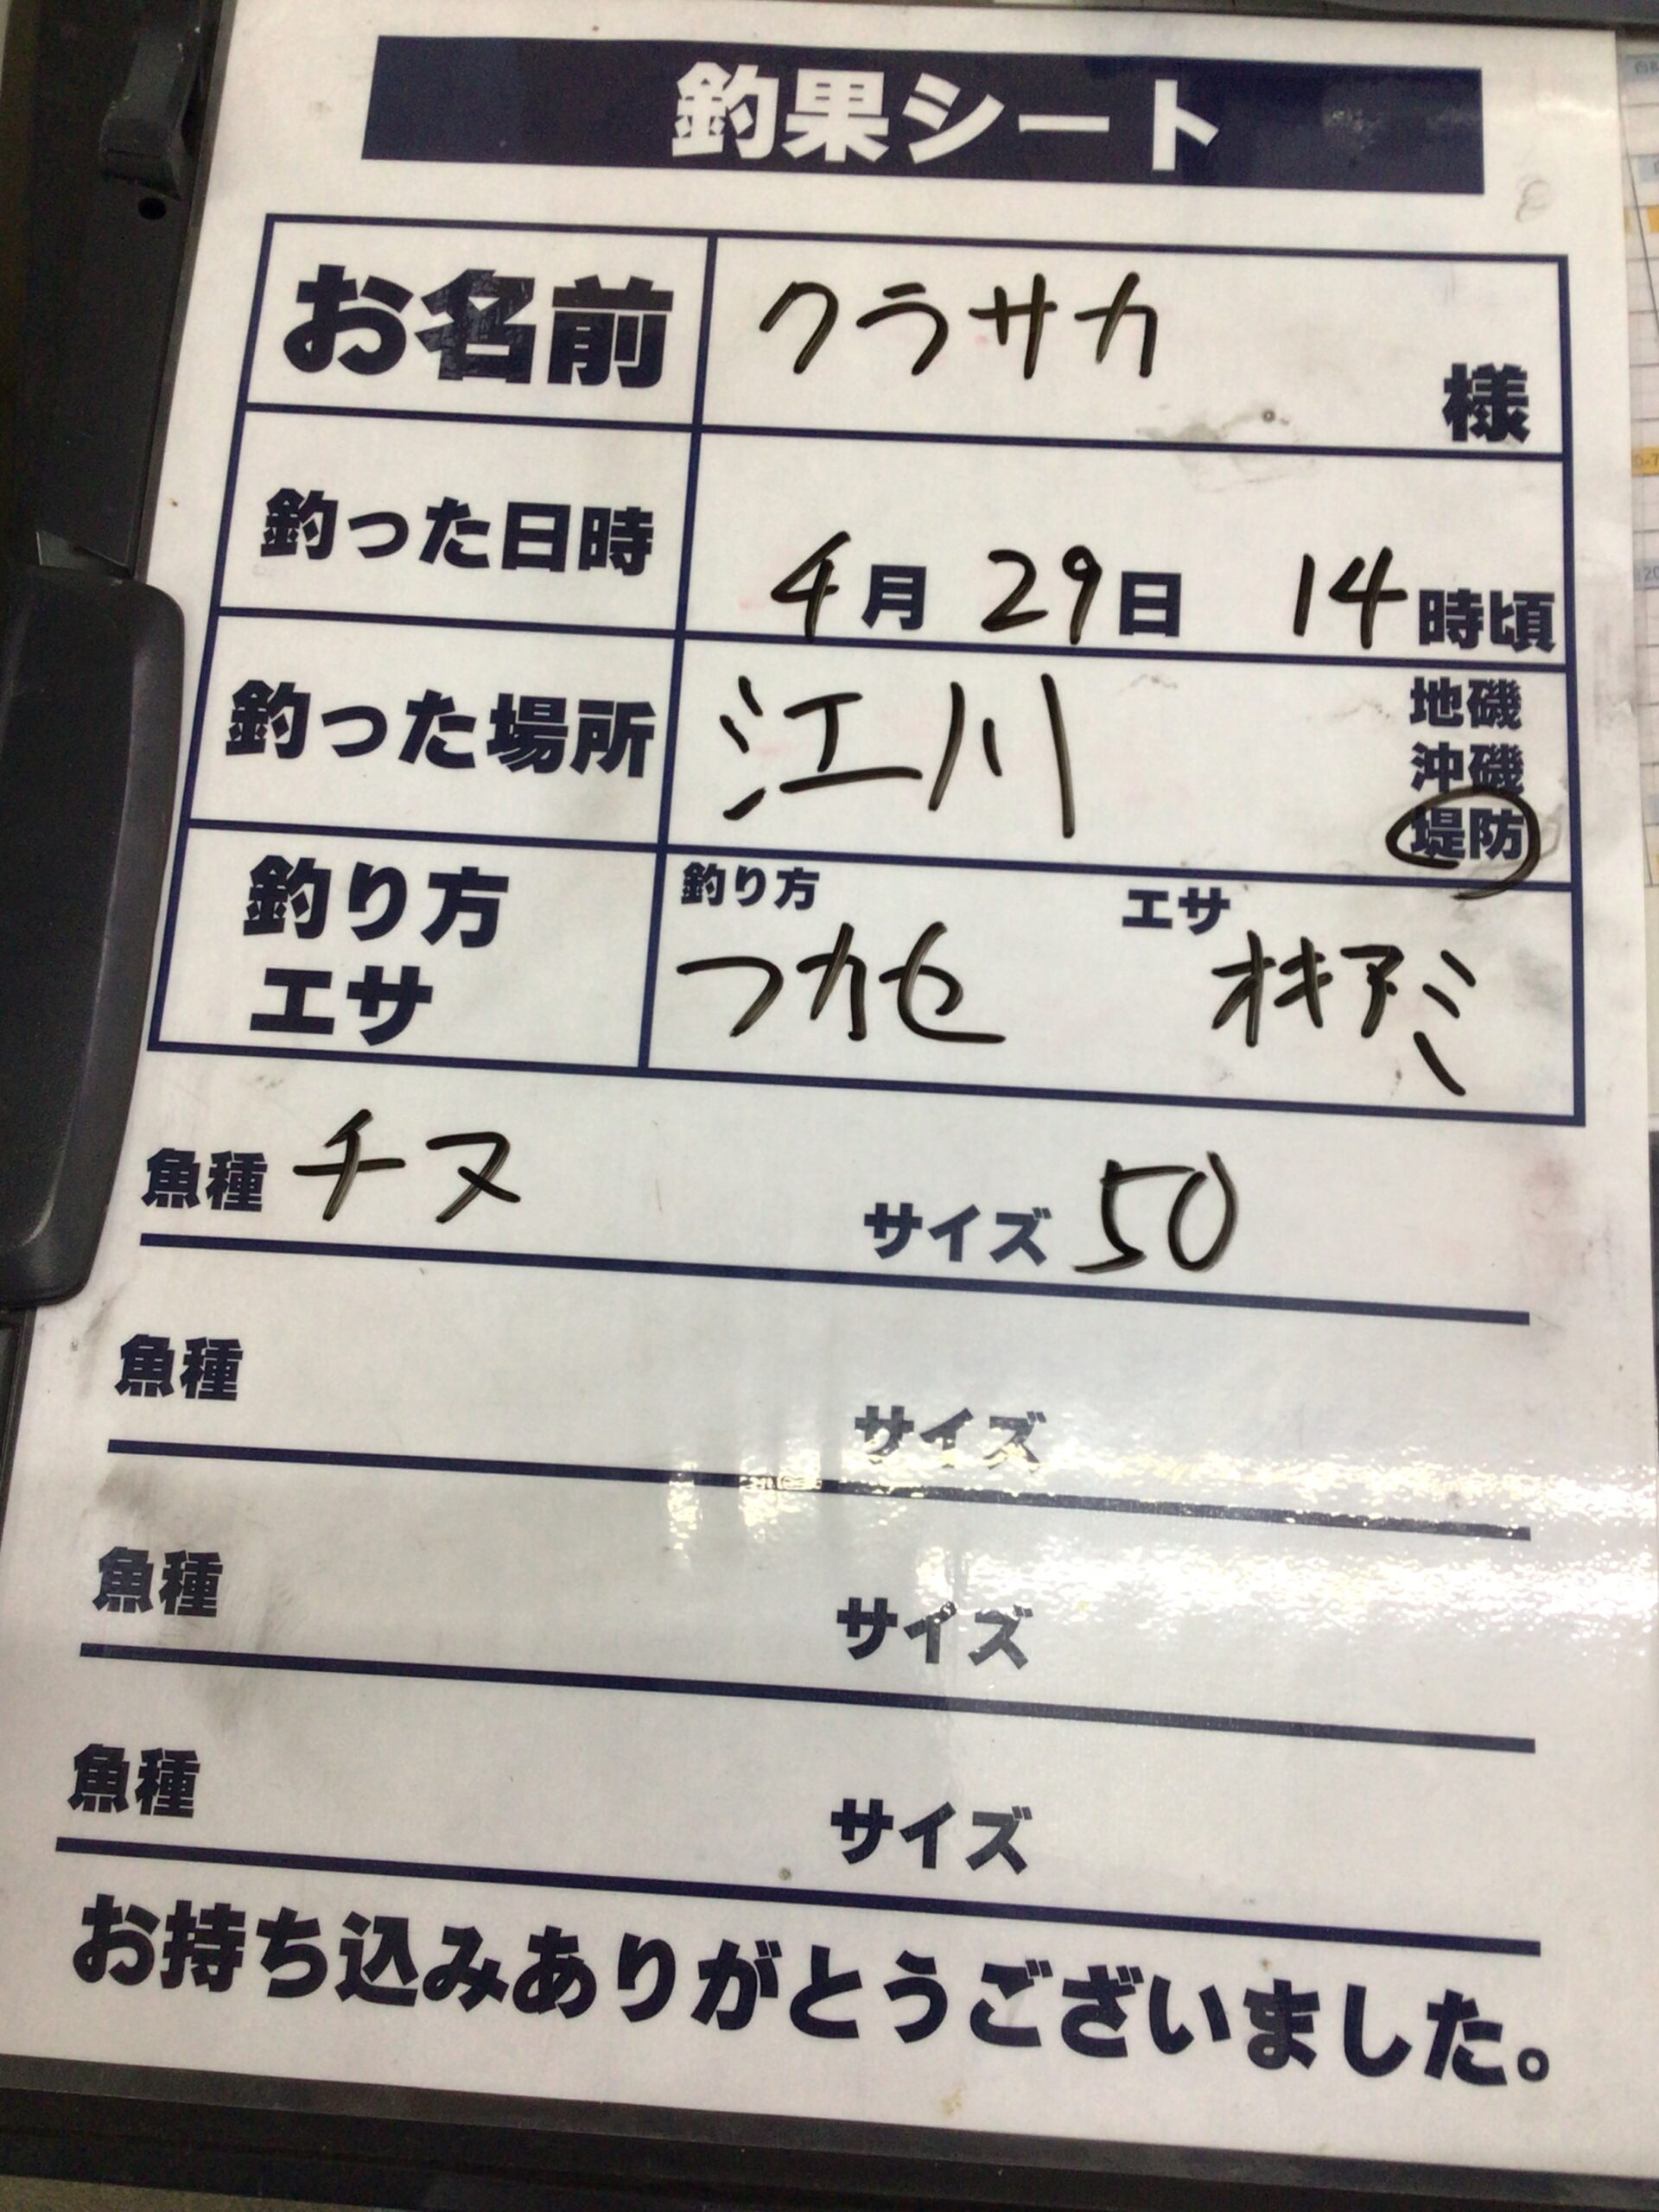 釣果シート
お名前 クラサカ 様
釣った日時 4月 29日 14時頃
釣った場所 江川 地磯
沖磯
堤防
釣り方 エサ
釣り方 フカセ エサ オキアミ
魚種 チヌ サイズ 50
魚種 サイズ
魚種 サイズ
魚種 サイズ
お持ち込みありがとうございました。